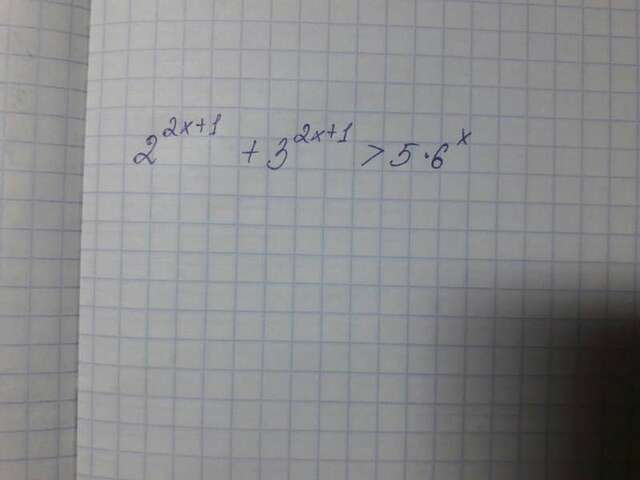 2^{2x+1} + 3^{2x+1} > 5·6^x